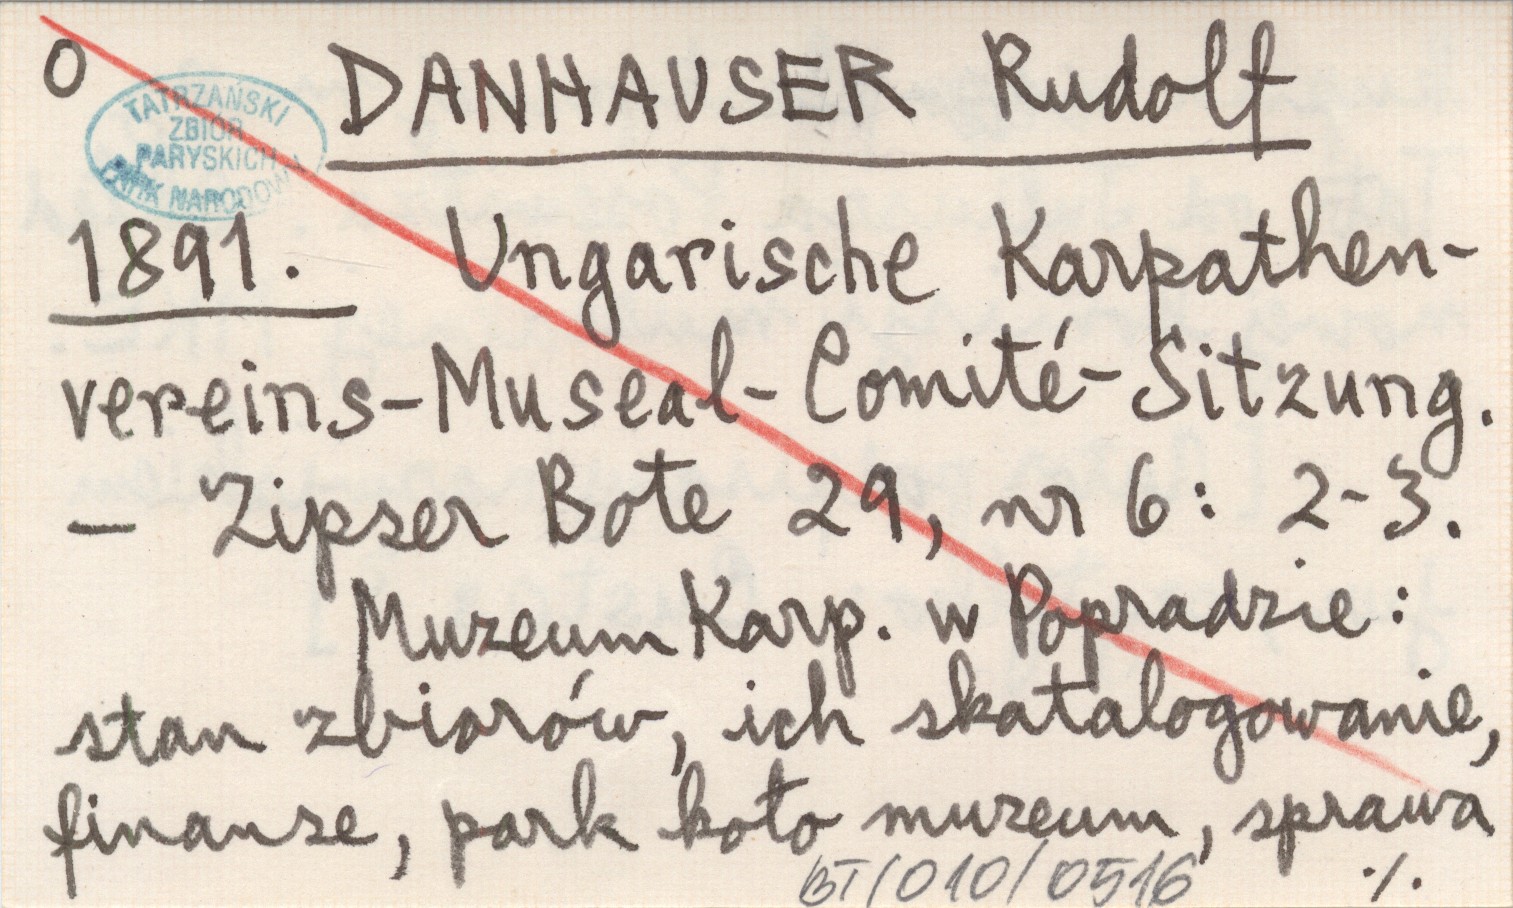 O
TATRZAŃSKI
ZBIÓR
PARYSKICH
PARK NARODOWY
DANHAUSER Rudolf
1891. Ungarische Karpathen-
vereins-Museal-Comité-Sitzung.
— Zipser Bote 29, nr 6: 2-3.
Muzeum Karp. w Popradzie:
stan zbiorów, ich skatalogowanie,
finanse, park koło muzeum, sprawa
BT/010/0516
./.